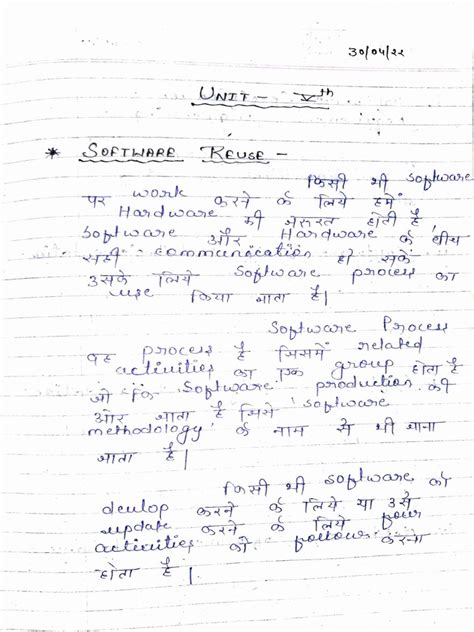 30/04/22
UNIT - Vth
* SOFTWARE REUSE -
किसी भी software
पर work करने के लिये हमें
Hardware की जरूरत होती है,
software और Hardware के बीच
सही communication हो सकें
उसके लिये software process का
use किया जाता है।
Software Process
वह process है जिसमें related
activities का एक group होता है
जो कि software production की
ओर जाता है जिसे 'software
methodology' के नाम से भी जाना
जाता है।
किसी भी software को
devlop करने के लिये या उसे
update करने के लिये four
activities को follow करना
होता है।